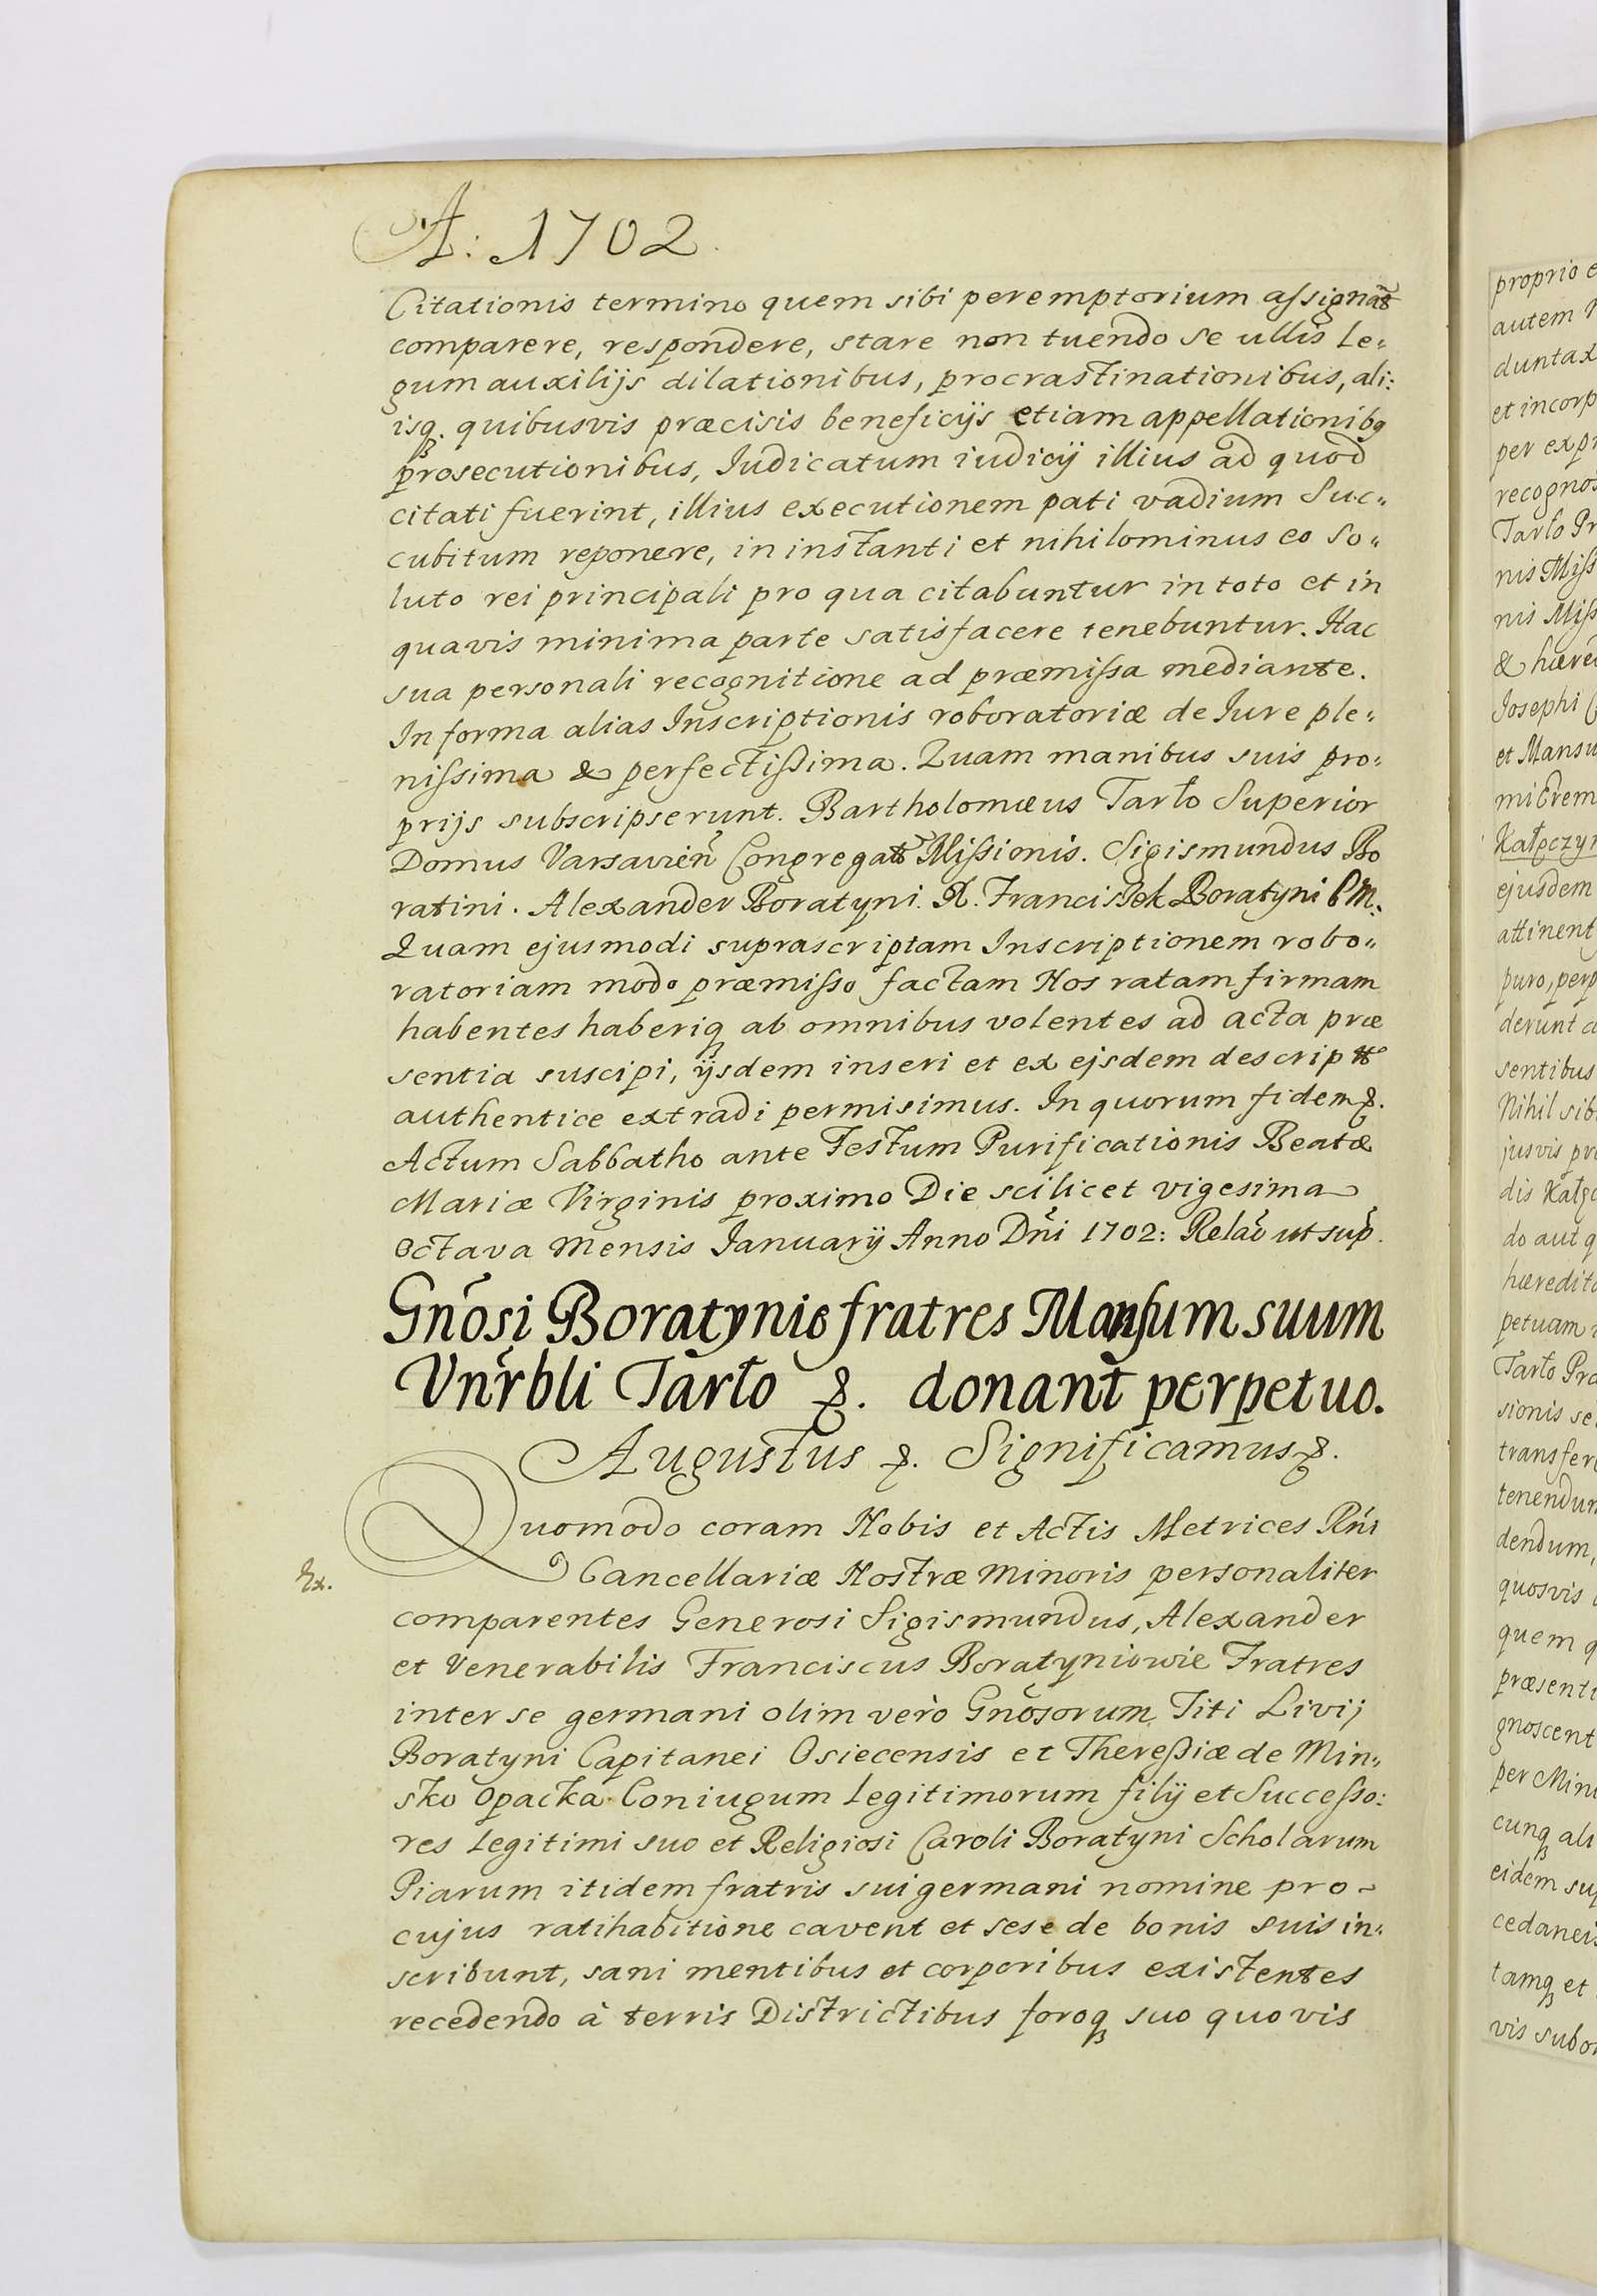 A: 1702.
Citationis termino quem sibi peremptorium assignat̃
comparere, respondere, stare non tuendo se ullis le„
gum auxilijs dilationibus, procrastinationibus, ali:
isq. quibusvis præcisis beneficijs etiam appellationibq
prosecutionibus, Iudicatum iudicij illius ad quod
citati fuerint, illius executionem pati vadium Suc„
cubitum reponere, in instanti et nihilominus eo So„
luto rei principali pro qua citabuntur in toto et in
quavis minima parte satisfacere tenebuntur. Hac
sua personali recognitione ad præmissa mediante.
In forma alias Inscriptionis roboratoriæ de Iure ple„
nissima & perfectissima. Quam manibus suis pro„
prijs subscripserunt. Bartholomæus Tarło Superior
Domus Varsavien̄ Congregat̃ Missionis. Sigismundus Bo
ratini. Alexander Boratyni. X. Franciszek Boratyni C M:
Quam ejusmodi suprascriptam Inscriptionem robo„
ratoriam modo præmisso factam Nos ratam firmam
habentes haberiq ab omnibus volentes ad acta præ
sentia suscipi, ijsdem inseri et ex ejsdem descript̃
authentice extradi permisimus. In quorum fidem &.
Actum Sabbatho ante Festum Purificationis Beatæ
Mariæ Virginis proximo Die scilicet vigesima
octava Mensis Ianuarij Anno Dn̄i 1702: Relão ut sup̃.
Gnōsi Boratynie fratres Mansum suum
Vnr̃bli Tarło &. donant perpetuo.
Augustus &. Significamus &.
Quomodo coram Nobis et Actis Metrices Rn̄i
Cancellariæ Nostræ Minoris personaliter
Ex.
comparentes Generosi Sigismundus, Alexander
et Venerabilis Franciscus Boratyniowie Fratres
inter se germani olim verò Gnōsorum Titi Livij
Boratyni Capitanei Osiecensis et Theressiæ de Min„
sko Opacka Coniugum legitimorum filij et Successo:
res legitimi suo et Religiosi Caroli Boratyni Scholarum
Piarum itidem fratris sui germani nomine pro-
cujus ratihabitione cavent et sese de bonis suis in„
scribunt, sani mentibus et corporibus existentes
recedendo à terris Districtibus foroq suo quovis
proprio
autem
duntax
et incorp
per expr
recognos
Tarło Pr
nis Miss
nis Miss
& hæred
Josephi
et Mansu
mi Erem
Kałęczyn
ejusdem
attinent
puro, perp
derunt
sentibus
Nihil sib
jusvis pr
dis Kałę
do aut q
hæredita
petuam
Tarło Pr
sionis se
transfer
tenendum
dendum,
quosvis
quem q
præsenti
gnoscent
per Mini
cunq ali
eidem sup
cedaneis
tamq et
vis subor